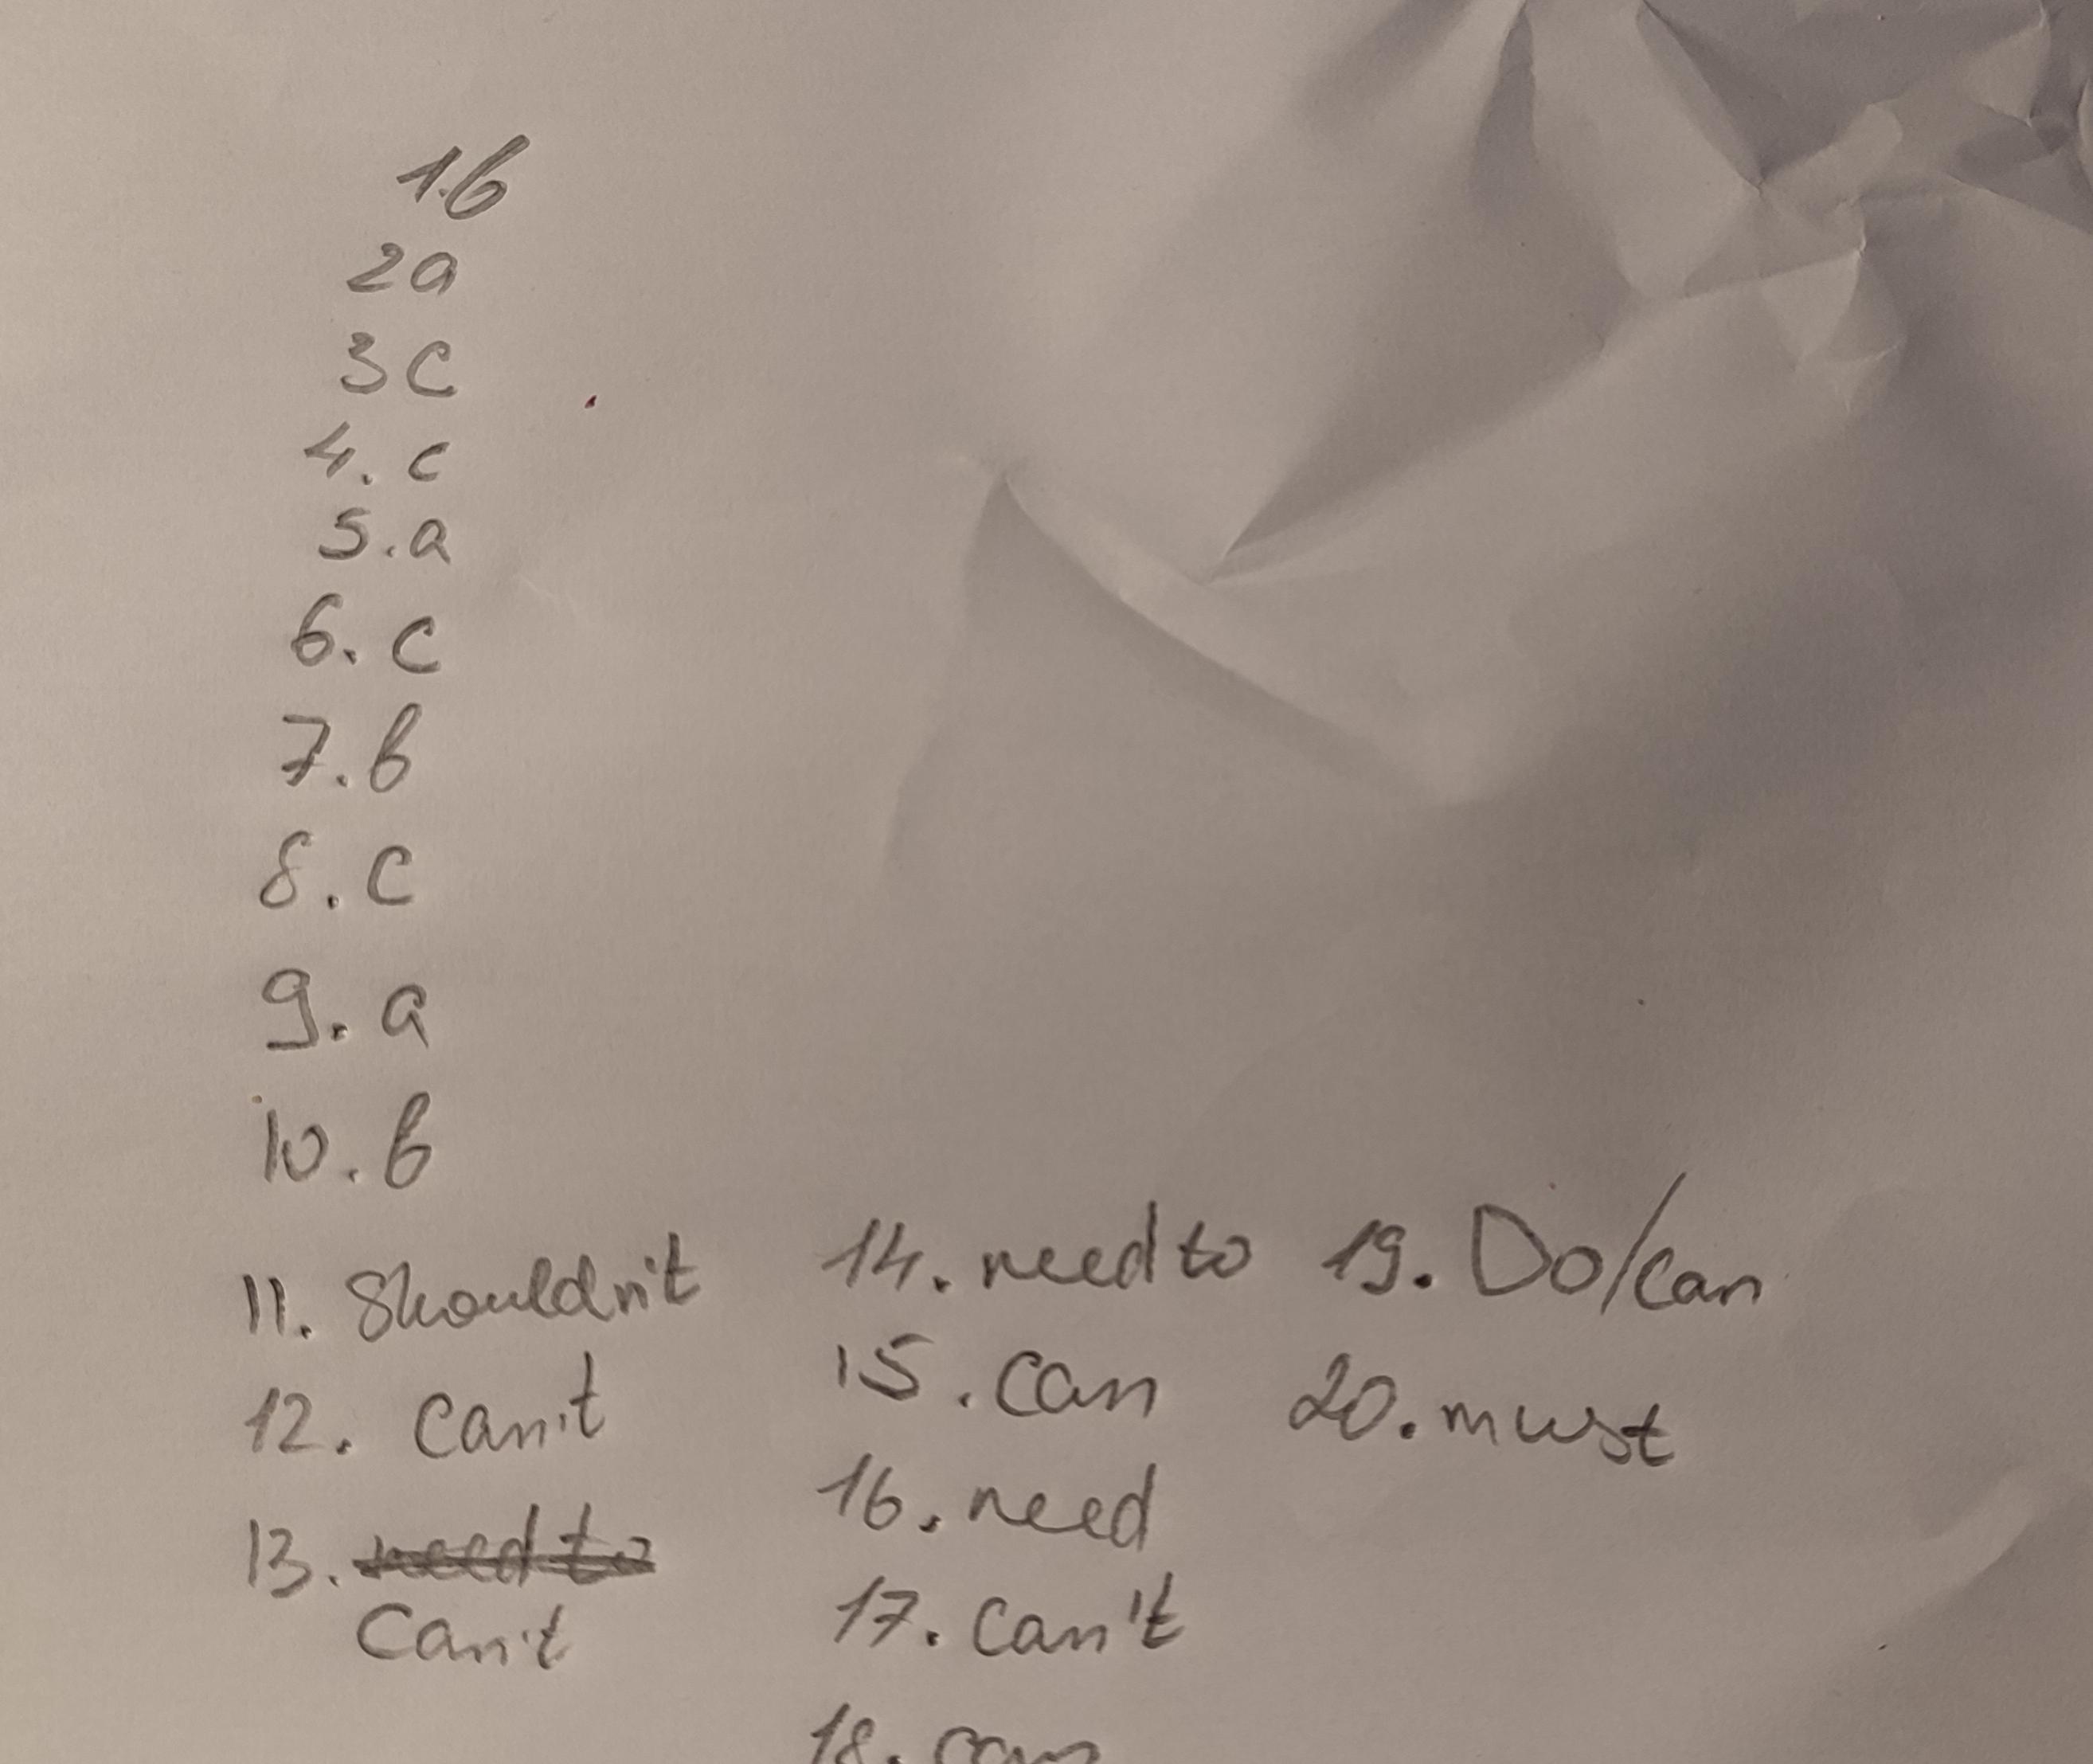 1.b
2a
3c
4. c
5. a
6. c
7. b
8. c
9. a
10. b
11. Shouldn't
12. can't
13. need to
can't
14. need to
15. can
16. need
17. can't
18. can
19. Do/can
20. must